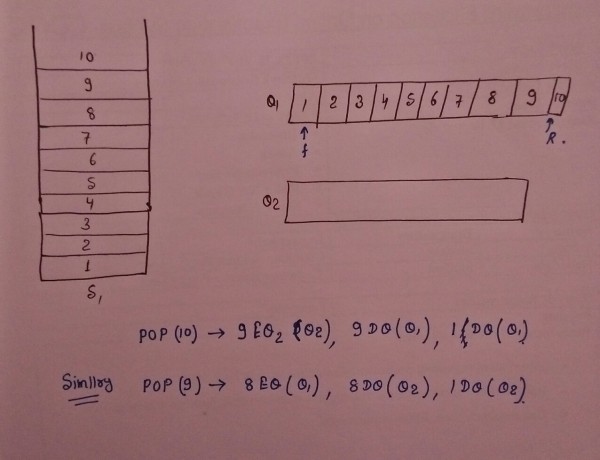 10
9
8
7
6
5
4
3
2
1
S1
Q1 1 2 3 4 5 6 7 8 9 10
f R.
Q2
POP (10) → 9 EQ2 (Q2), 9 DQ (Q1), 1 DQ (Q1)
Simllry POP (9) → 8 EQ (Q1), 8 DQ (Q2), 1 DQ (Q2)